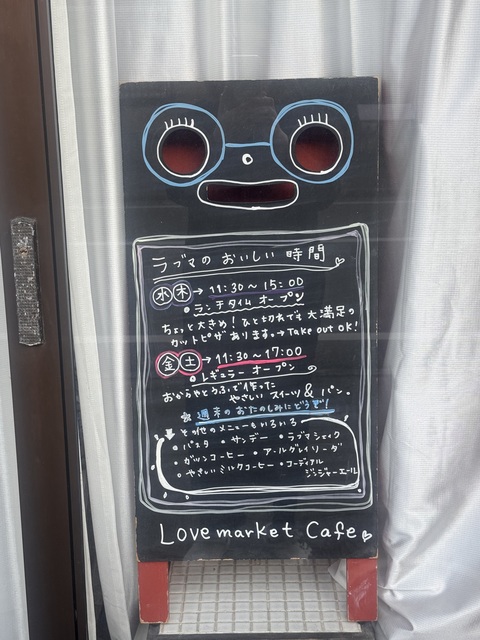 ラブマの おいしい 時間
水 木 → 11:30〜15:00
• ランチタイム オープン
ちょっと大きめ！ひと切れでも大満足の
カットピザ あります。→ Take out OK!
金 土 → 11:30〜17:00
• レギュラー オープン
おからやとうふで作った
やさしい スイーツ & パン。
☆ 週末のおたのしみにどうぞ！
その他のメニューもいろいろ
• パスタ • サンデー • ラブマシェイク
• ガッツコーヒー • アールグレイソーダ
• やさしいミルクコーヒー • コーディアル
ジンジャーエール
Love market Cafe